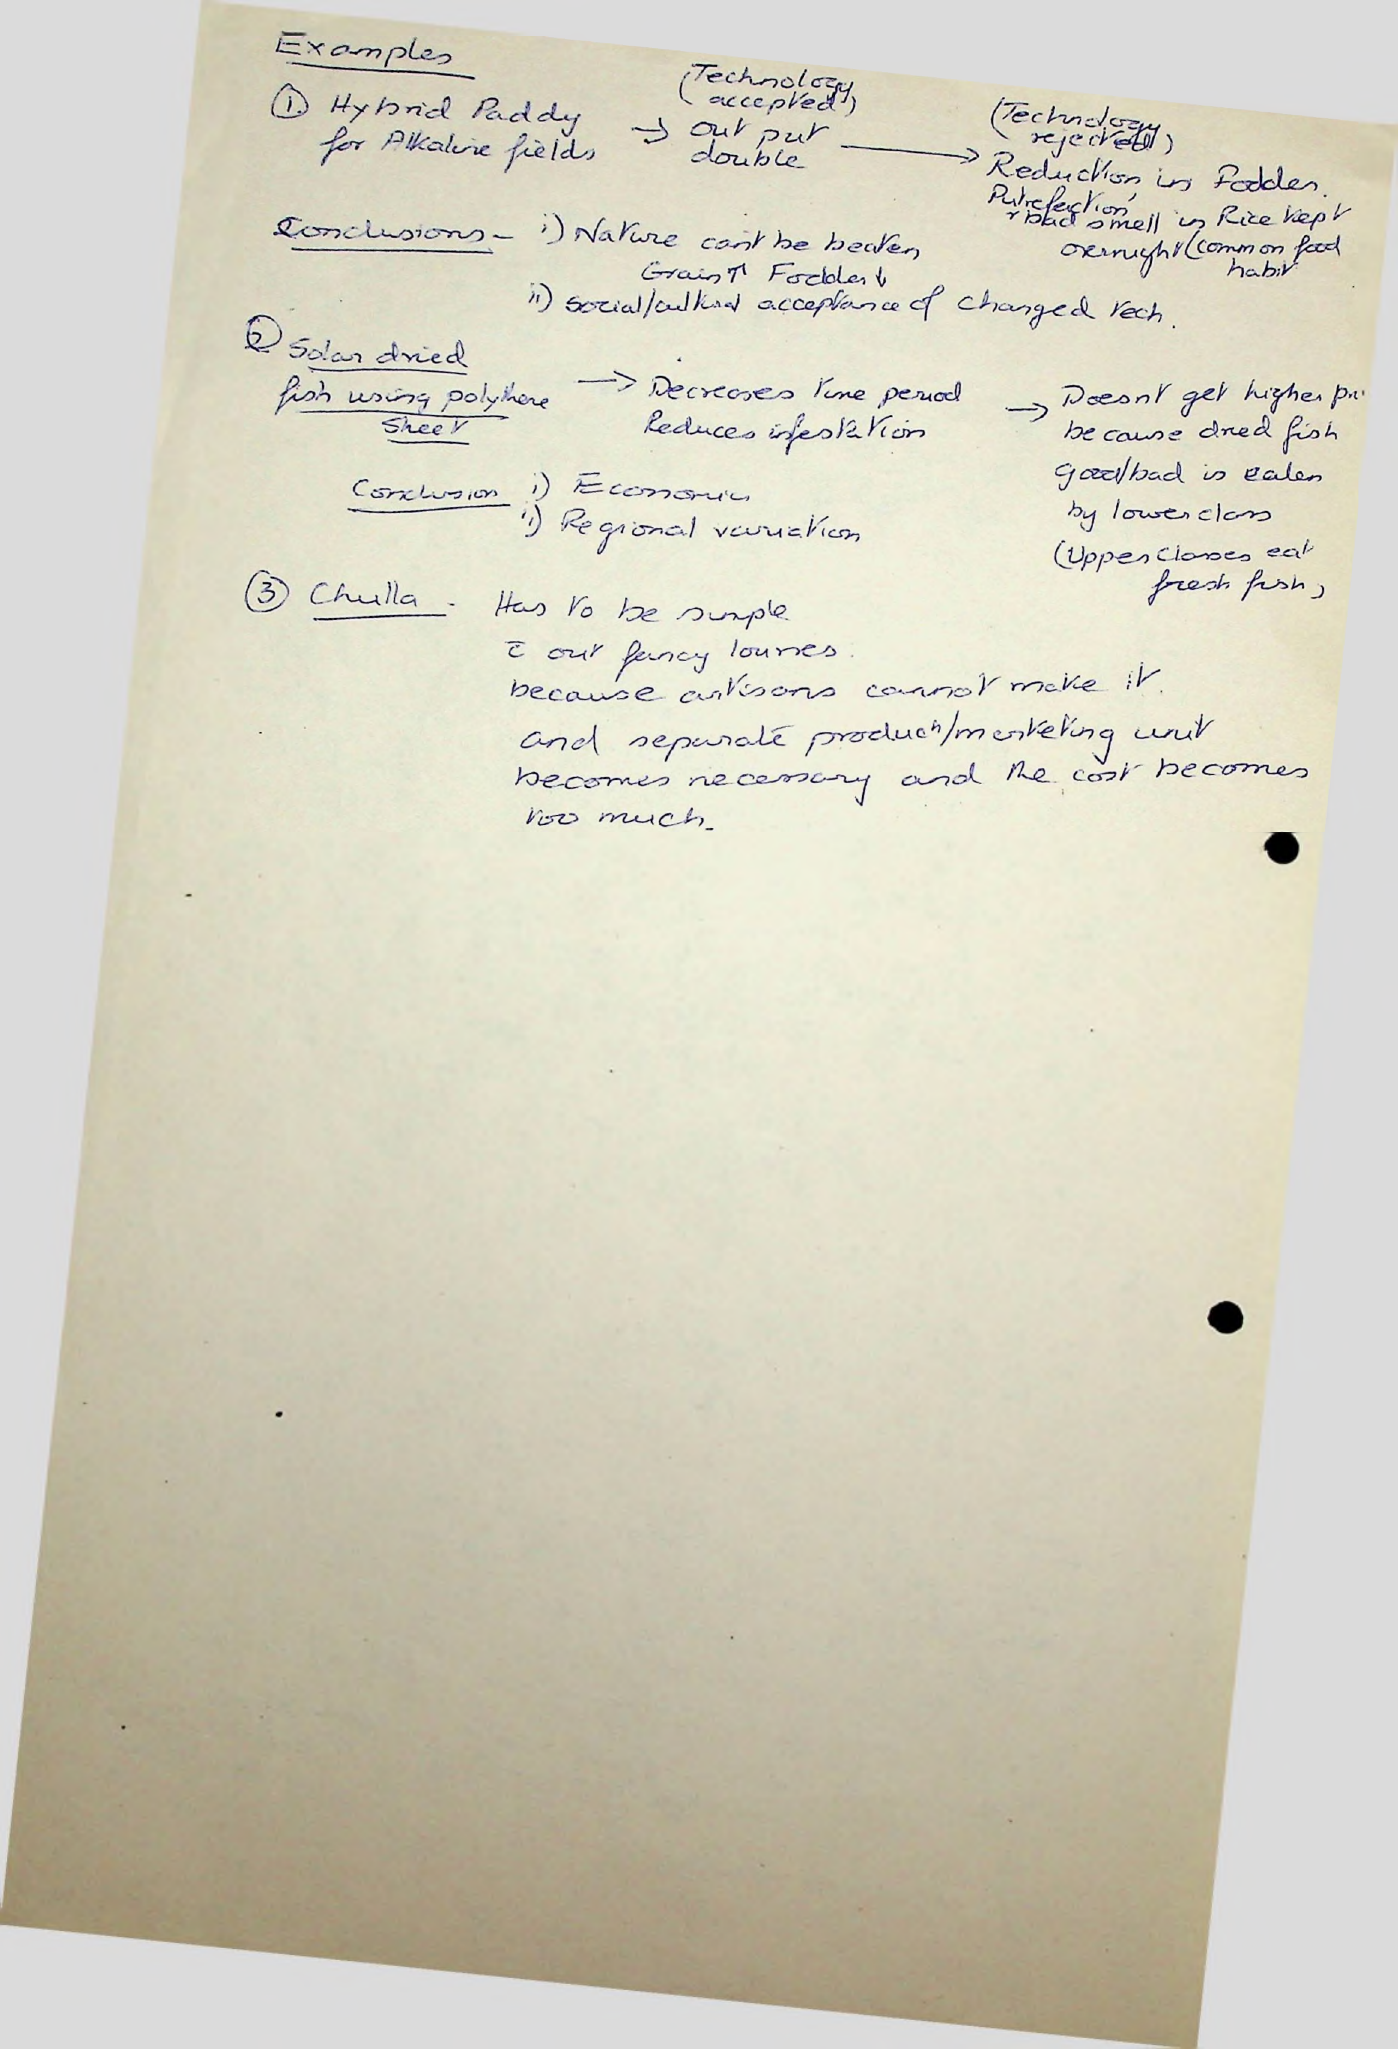 Examples
① Hybrid Paddy
for Alkaline fields
→
(Technology
accepted)
out put
double
→
(Technology
rejected)
Reduction in Fodder.
Putrefaction,
+ bad smell in Rice kept
overnight (common food
habit
Conclusions - i) Nature can't be beaten
Grain↑ Fodder↓
ii) Social/cultural acceptance of changed tech.
② Solar dried
fish using polythene
sheet
→ Decreases time period
Reduces infestation
→ Doesnt get higher
because dried fish
good/bad is eaten
by lower class
(Upper classes eat
fresh fish)
Conclusion i) Economic
ii) Regional variation
③ Chulla - Has to be simple
c̄ out fancy louvres.
because artisans cannot make it.
and separate producⁿ/marketing unit
becomes necessary and the cost becomes
too much.